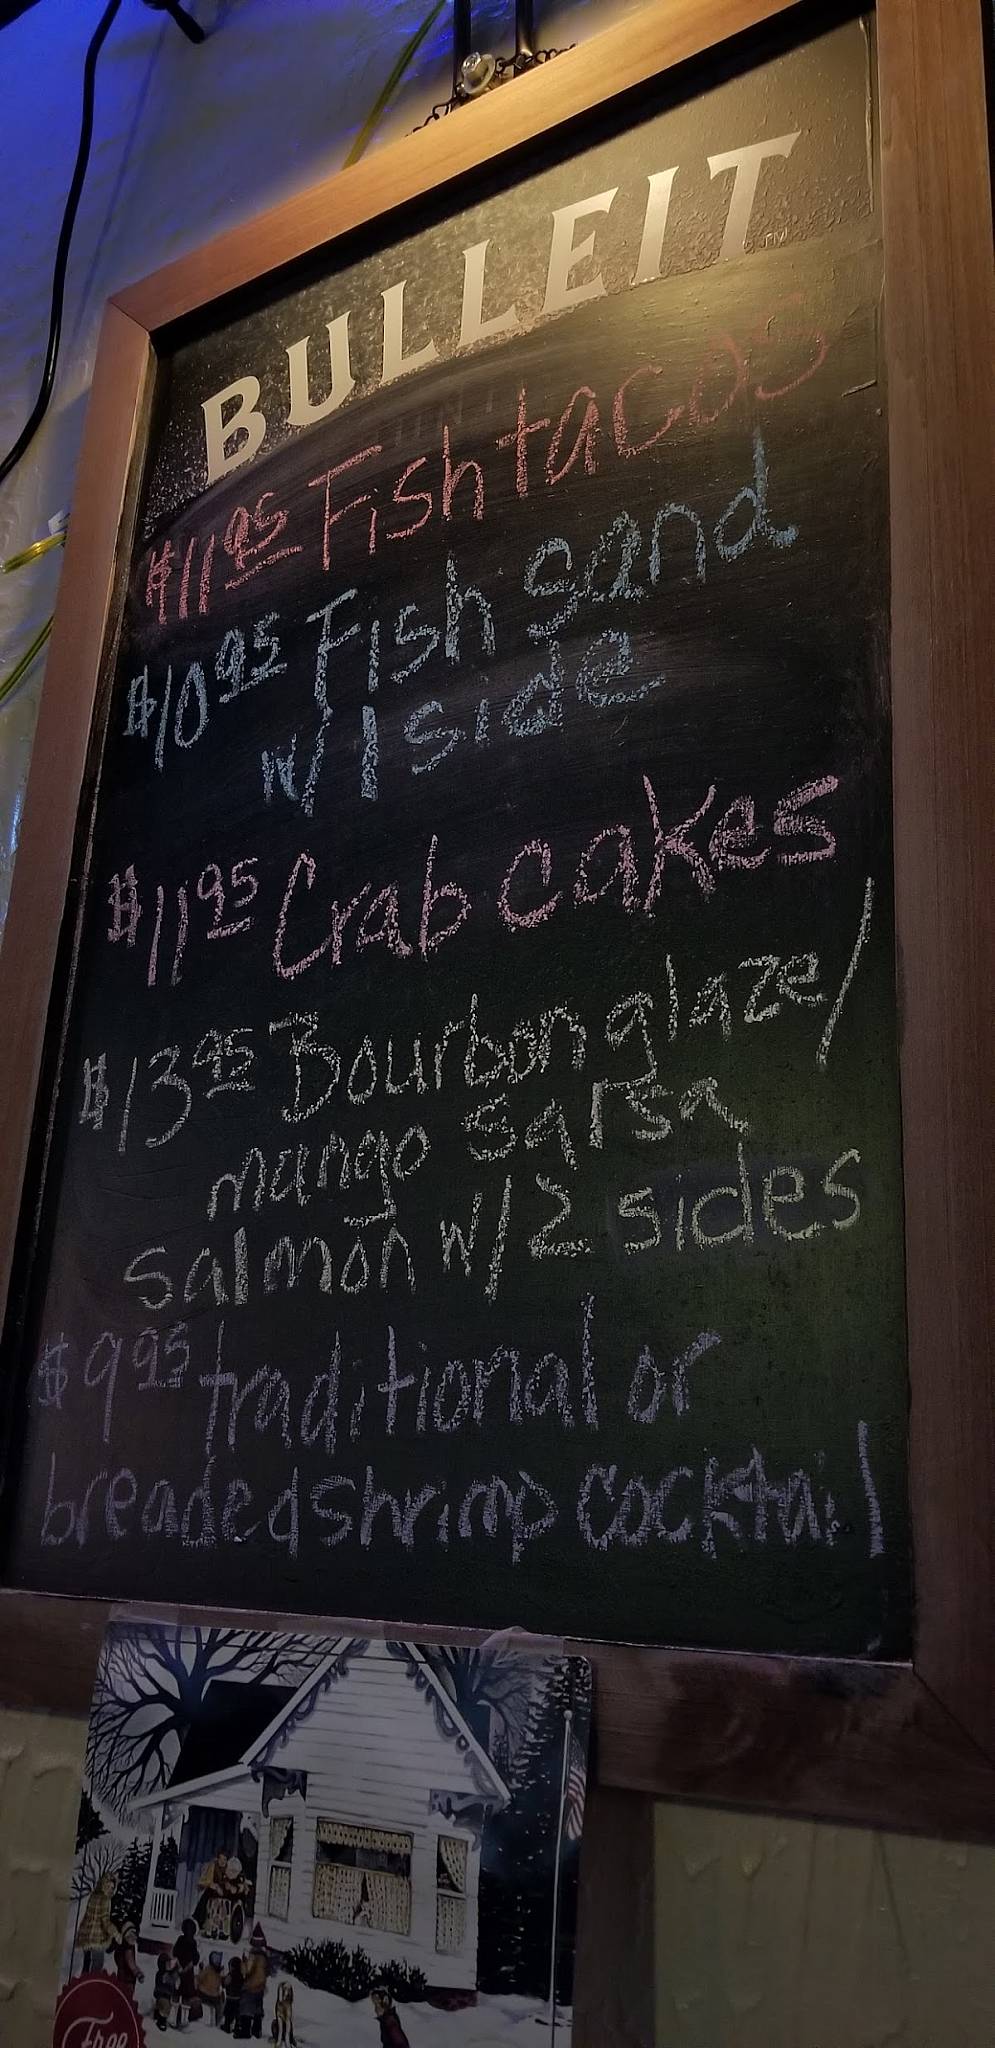 BULLEIT
$11.95 Fish tacos
$10.95 Fish sand
w/ 1 side
$11.95 Crab cakes
$13.95 Bourbon glaze/
mango salsa
salmon w/ 2 sides
$9.95 traditional or
breaded shrimp cocktail
Free